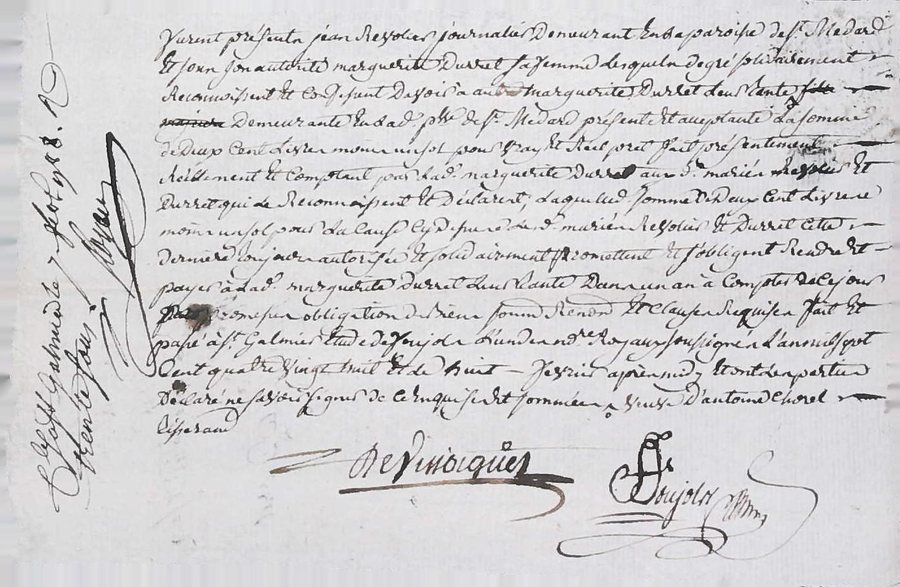 furent présents jean Revolier journalier Demeurant En la paroisse de St. Medard
Et sous son autorité marguerite Durret sa femme Lesquels de gré solidairement
Reconnoissent Et Confessent Devoir a autre marguerite Durret Leur tante
Demeurante En lad. psse de St. Medard présente Et acceptante La somme
de Deux Cent Livres moins un sol pour vray Et Réel pret fait présentement
Réellement Et Comptant par Lad. marguerite Durret aux d. mariés Revolier Et
Durret qui le Reconnoissent Et Déclarent, Laquelle d. somme de Deux Cent Livres
moins un sol pour La Cause Cy Dessus Les d. mariés Revolier Et Durret Cette
Derniere toujours autorisée Et solidairement promettent Et s'obligent Rendre Et
payer à Lad. marguerite Durret Leur tante Dans un an à Compter de Ce jour
promesses obligation de Biens soum. Renon. Et Clauses Requises fait Et
passé à St. Galmier Etude de Soujol L'un des nres Royaux soussignés L'an mil sept
Cent quatre vingt huit Et le huit fevrier après midy Et ont Les parties
Déclaré ne savoir signer de Ce Enquises Et sommées veuve D'antoine Chorel
tisserand
DeVinoiques
Soujol
St Galmier le 7 1788. R
trente sous